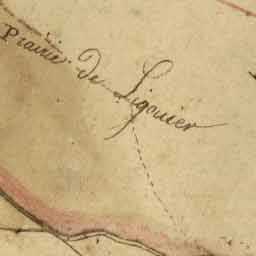 Prairie de Ligouier